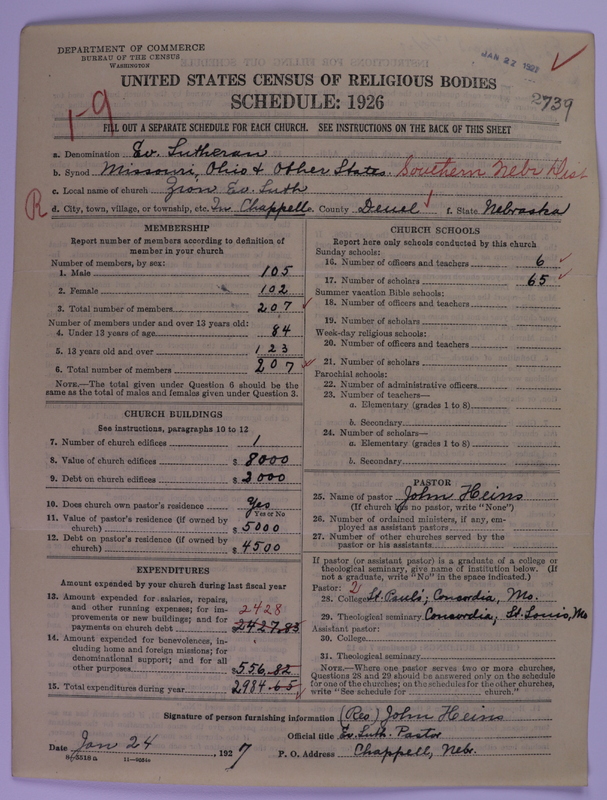 DEPARTMENT OF COMMERCE
BUREAU OF THE CENSUS
WASHINGTON
JAN 22 1927
UNITED STATES CENSUS OF RELIGIOUS BODIES
SCHEDULE: 1926
1-9
2739
FILL OUT A SEPARATE SCHEDULE FOR EACH CHURCH. SEE INSTRUCTIONS ON THE BACK OF THIS SHEET
a. Denomination Ev. Lutheran
b. Synod Missouri, Ohio & Other States. Southern Nebr Dist
c. Local name of church Zion Ev. Luth
R d. City, town, village, or township, etc. In Chappell c. County Deuel f. State Nebraska
MEMBERSHIP
Report number of members according to definition of
member in your church
Number of members, by sex:
1. Male 105
2. Female 102
3. Total number of members 207
Number of members under and over 13 years old:
4. Under 13 years of age 84
5. 13 years old and over 123
6. Total number of members 207
NOTE.—The total given under Question 6 should be the
same as the total of males and females given under Question 3.
CHURCH BUILDINGS
See instructions, paragraphs 10 to 12
7. Number of church edifices 1
8. Value of church edifices $ 8000
9. Debt on church edifices $ 2000
10. Does church own pastor's residence? Yes
Yes or No
11. Value of pastor's residence (if owned by
church) $ 5000
12. Debt on pastor's residence (if owned by
church) $ 4500
EXPENDITURES
Amount expended by your church during last fiscal year
13. Amount expended for salaries, repairs,
and other running expenses; for im-
provements or new buildings; and for
payments on church debt 2428
$ 2427.83
14. Amount expended for benevolences, in-
cluding home and foreign missions; for
denominational support; and for all
other purposes $ 556.82
15. Total expenditures during year 2984.65
CHURCH SCHOOLS
Report here only schools conducted by this church
Sunday schools:
16. Number of officers and teachers 6
17. Number of scholars 65
Summer vacation Bible schools:
18. Number of officers and teachers
19. Number of scholars
Week-day religious schools:
20. Number of officers and teachers
21. Number of scholars
Parochial schools:
22. Number of administrative officers
23. Number of teachers—
a. Elementary (grades 1 to 8)
b. Secondary
24. Number of scholars—
a. Elementary (grades 1 to 8)
b. Secondary
PASTOR
25. Name of pastor John Heins
(If church has no pastor, write "None")
26. Number of ordained ministers, if any, em-
ployed as assistant pastors
27. Number of other churches served by the
pastor or his assistants
If pastor (or assistant pastor) is a graduate of a college or
theological seminary, give name of institution below. (If
not a graduate, write "No" in the space indicated.)
Pastor: 2
28. College St. Paul's; Concordia, Mo.
29. Theological seminary Concordia; St. Louis, Mo
Assistant pastor:
30. College
31. Theological seminary
NOTE.—Where one pastor serves two or more churches,
Questions 28 and 29 should be answered only on the schedule
for one of the churches; on the schedules for the other churches,
write "See schedule for church."
Signature of person furnishing information (Rev.) John Heins
Official title Ev. Luth. Pastor
Date Jan 24, 1927 P. O. Address Chappell, Nebr.
8-3318 a 11-9884